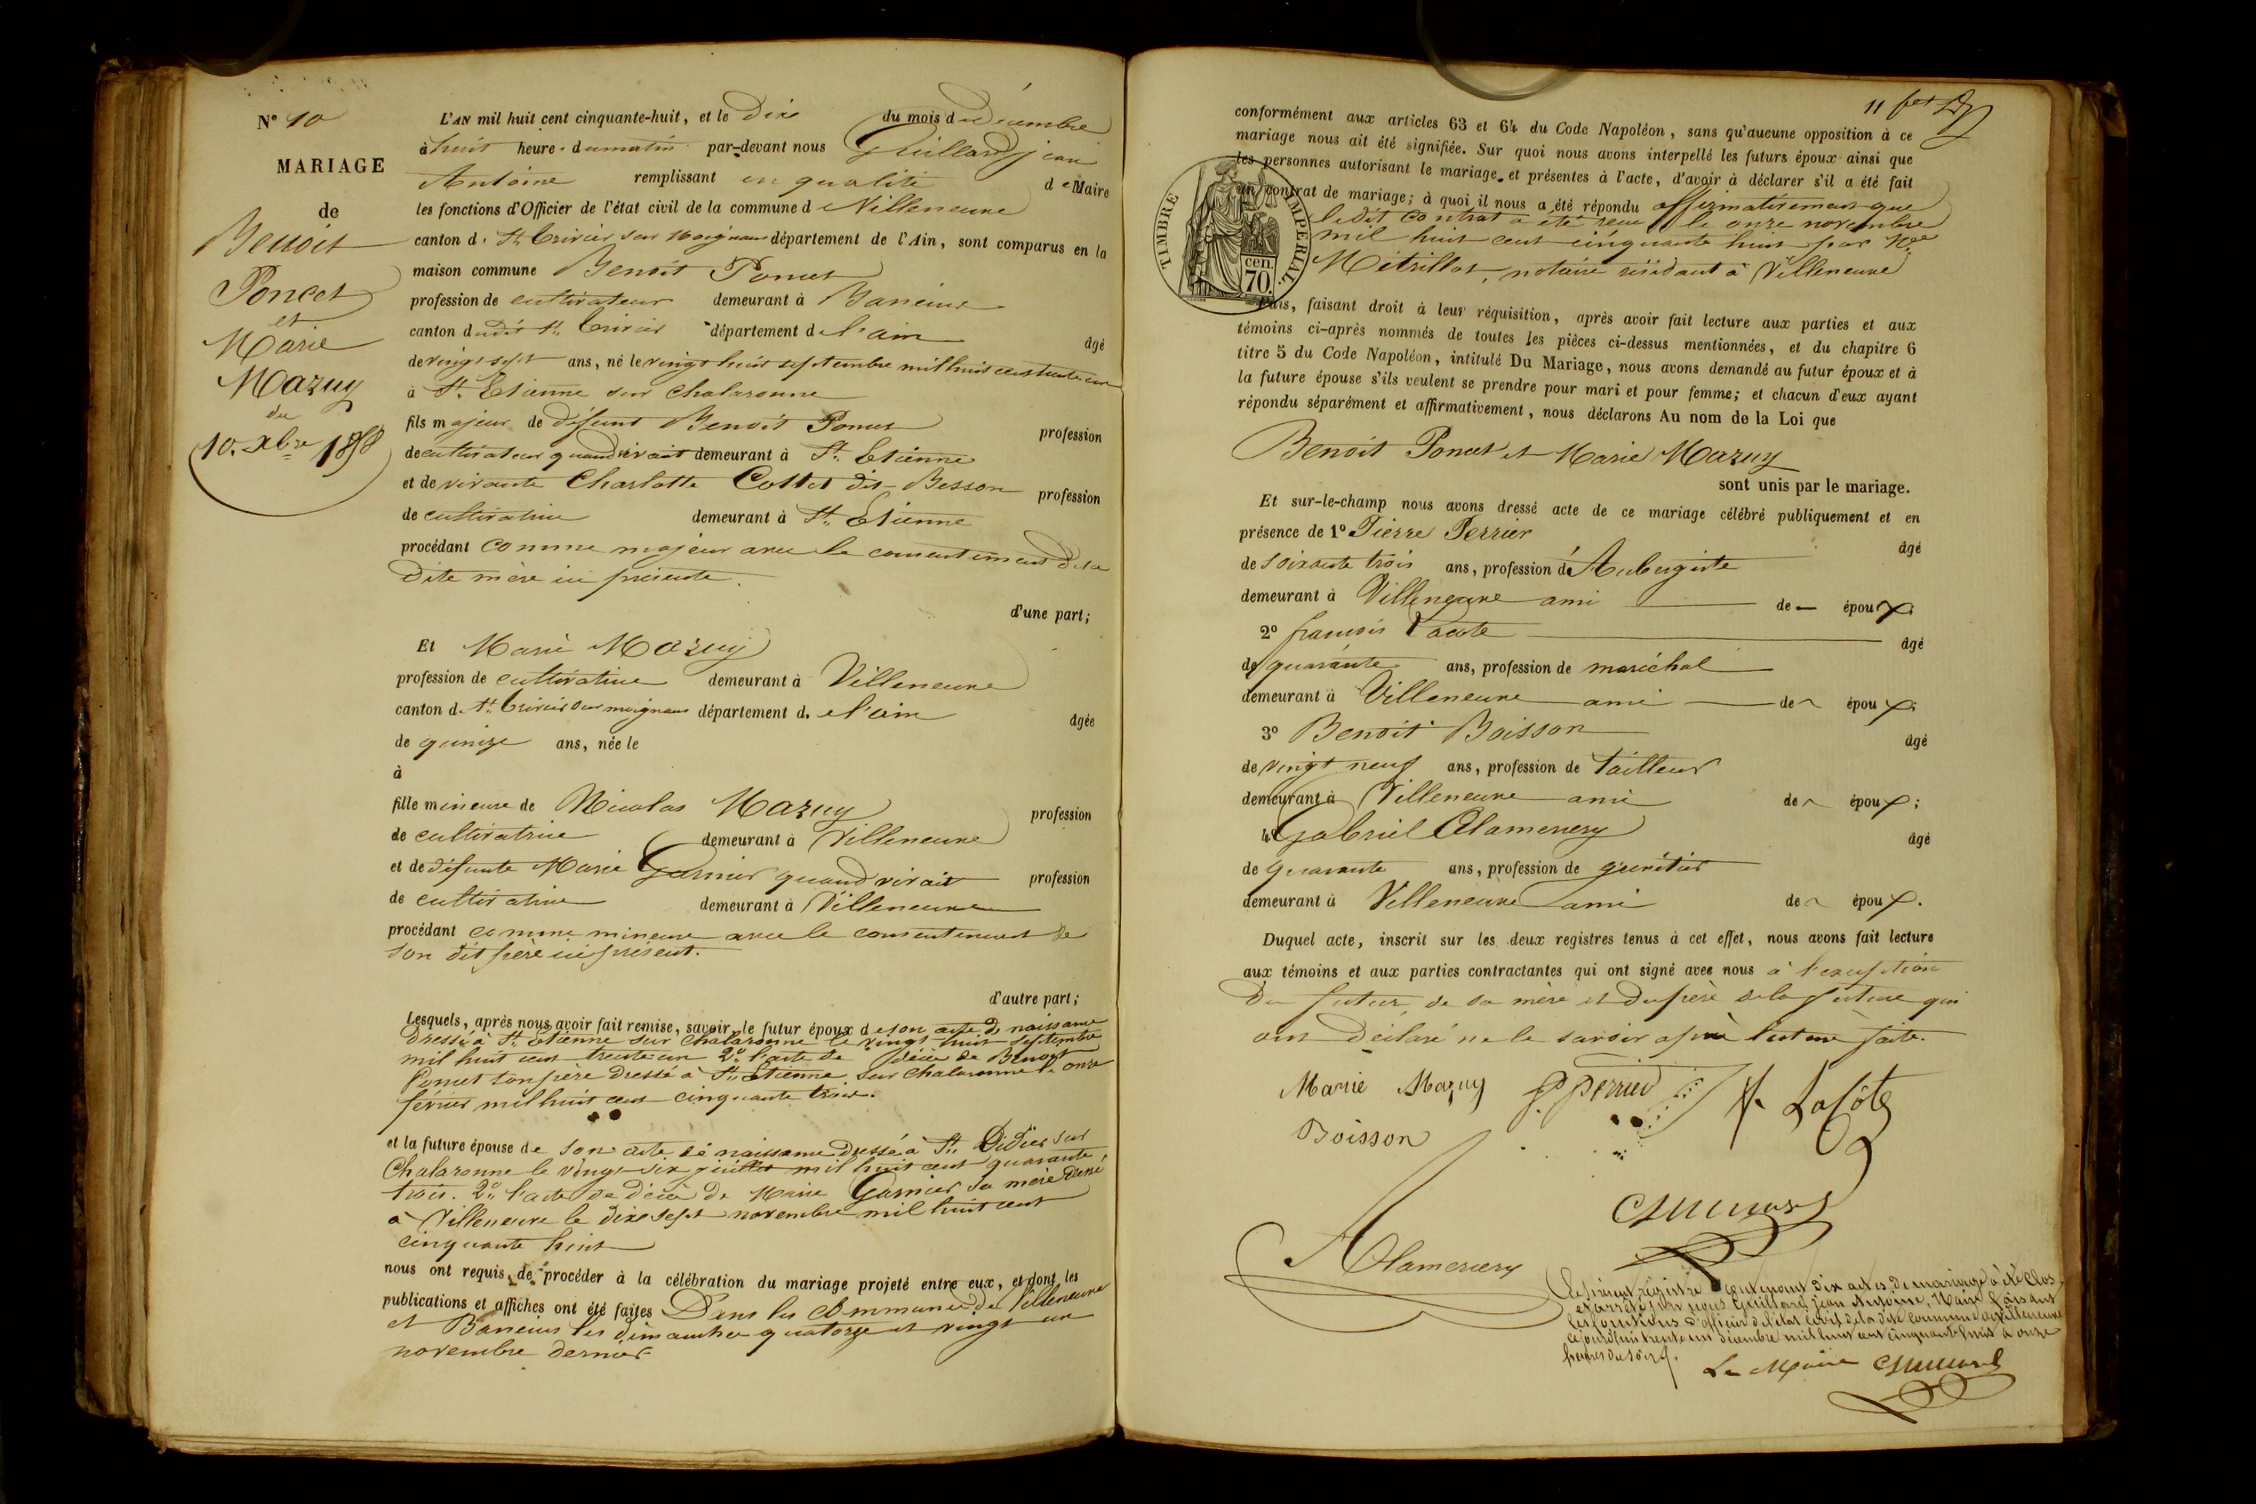 N° 10
MARIAGE
de
Benoit
Poncet
et
Marie
Mazuy
du
10. Xbre 1858
L'AN mil huit cent cinquante-huit, et le dix du mois de décembre
à huit heure. du matin par-devant nous Guillard jean
Antoine remplissant en qualité de Maire
les fonctions d'Officier de l'état civil de la commune de Villeneuve
canton d. St. Trivier sur Moignans département de l'Ain, sont comparus en la
maison commune Benoit Poncet
profession de cultivateur demeurant à Baneins
canton dudit St. Trivier département de l'ain âgé
de vingt sept ans, né le vingt huit septembre mil huit cent trente un
à St. Etienne sur chalaronne
fils majeur de défunt Benoit Poncet profession
de cultivateur quand vivait demeurant à St. Etienne
et de vivante Charlotte Cottet dit Besson profession
de cultivatrice demeurant à St. Etienne
procédant comme majeur avec le consentement de sa
dite mère ici présente.
d'une part;
Et Marie Mazuy
profession de cultivatrice demeurant à Villeneuve
canton d. St. Trivier sur moignans département d. e l'ain âgée
de quinze ans, née le
à
fille mineure de Nicolas Mazuy profession
de cultivatrice demeurant à Villeneuve
et de défunte Marie Garnier quand vivait profession
de cultivatrice demeurant à Villeneuve
procédant comme mineure avec le consentement de
son dit père ici présent.
d'autre part;
Lesquels, après nous avoir fait remise, savoir, le futur époux de son acte de naissance
dressé à St. Etienne sur Chalaronne le vingt huit septembre
mil huit cent trente un 2° l'acte de décès de Benoit
Poncet son père dressé à St. Etienne sur chalaronne le onze
février mil huit cent cinquante trois.
et la future épouse de son acte de naissance dressé à St. Didier sur
Chalaronne le vingt six juillet mil huit cent quarante
trois. 2° l'acte de décès de Marie Garnier sa mère dressé
à Villeneuve le dix sept novembre mil huit cent
cinquante huit
nous ont requis de procéder à la célébration du mariage projeté entre eux, et dont les
publications et affiches ont été faites Dans les communes de Villeneuve
et Baneins les dimanches quatorze et vingt un
novembre dernier
11
conformément aux articles 63 et 64 du Code Napoléon, sans qu'aucune opposition à ce
mariage nous ait été signifiée. Sur quoi nous avons interpellé les futurs époux ainsi que
les personnes autorisant le mariage et présentes à l'acte, d'avoir à déclarer s'il a été fait
un contrat de mariage; à quoi il nous a été répondu affirmativement que
le dit contrat a été reçu le onze novembre
mil huit cent cinquante huit par Me
Métrillot, notaire résidant à Villeneuve
TIMBRE IMPERIAL.
cen.
70.
Puis, faisant droit à leur réquisition, après avoir fait lecture aux parties et aux
témoins ci-après nommés de toutes les pièces ci-dessus mentionnées, et du chapitre 6
titre 5 du Code Napoléon, intitulé Du Mariage, nous avons demandé au futur époux et à
la future épouse s'ils veulent se prendre pour mari et pour femme; et chacun d'eux ayant
répondu séparément et affirmativement, nous déclarons Au nom de la Loi que
Benoit Poncet et Marie Mazuy
sont unis par le mariage.
Et sur-le-champ nous avons dressé acte de ce mariage célébré publiquement et en
présence de 1° Pierre Perrier âgé
de soixante trois ans, profession de Aubergiste
demeurant à Villeneuve ami de — époux
2° françois Lacote âgé
de quarante ans, profession de maréchal
demeurant à Villeneuve ami de époux;
3° Benoit Boisson âgé
de vingt neuf ans, profession de tailleur
demeurant à Villeneuve ami de époux;
4° Gabriel Alamercery âgé
de quarante ans, profession de
demeurant à Villeneuve ami de époux.
Duquel acte, inscrit sur les deux registres tenus à cet effet, nous avons fait lecture
aux témoins et aux parties contractantes qui ont signé avec nous à l'exception
du futur, de sa mère et du père de la future qui
ont déclaré ne le savoir après lecture faite.
Marie Mazuy P. Perrier f. Lacôte
Boisson
Guillard
Alamercery
Le présent registre contenant dix actes de mariage a été clos
et arrêté par nous Guillard jean Antoine, Maire faisant
les fonctions d'officier de l'état civil de la dite commune de Villeneuve
ce jourd'hui trente un décembre mil huit cent cinquante huit à onze
heures du soir.
Le Maire Guillard